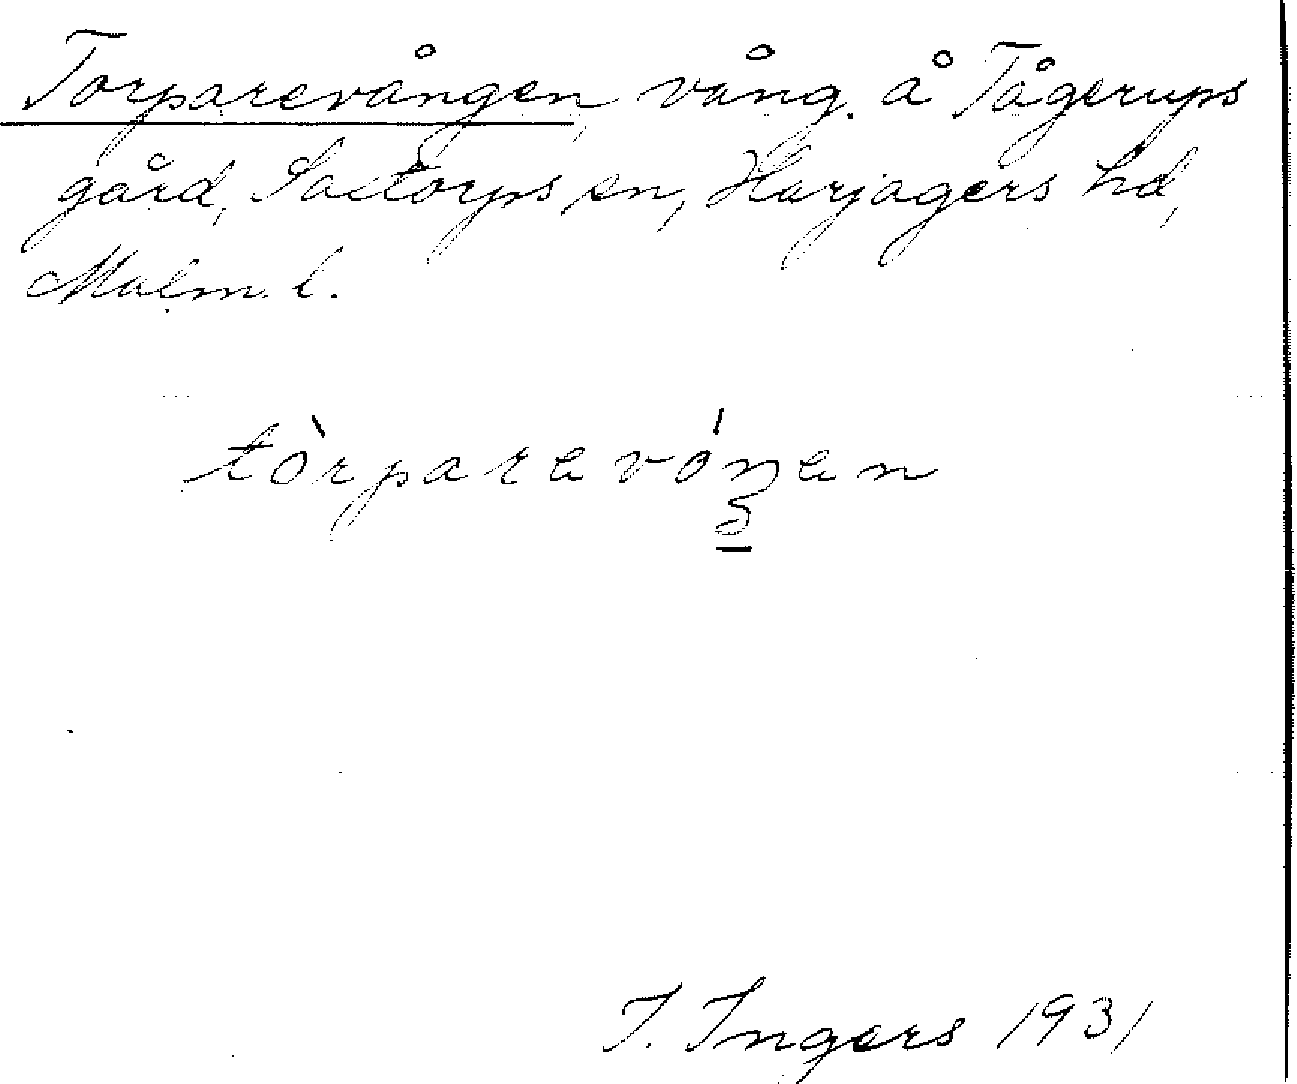 Torparevången, vång å Tågerups
gård, Saxtorps sn, Harjagers hd,
Malm. l.
tòrparavóŋan
I. Ingers 1931